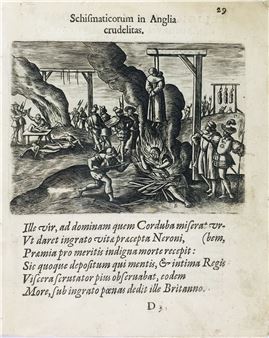 29
Schiſmaticorum in Anglia
crudelitas.
Ille vir, ad dominam quem Corduba miſerat vr-
Vt daret ingrato vitæ præcepta Neroni, (bem,
Præmia pro meritis indigna morte recepit:
Sic quoque depoſitum qui mentis, & intima Regis
Viſcera ſcrutator pius obſeruabat, eodem
More, ſub ingrato pœnas dedit ille Britanno.
D 3